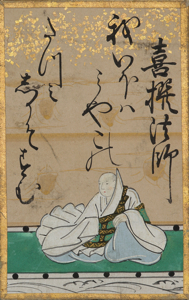 喜撰法師
我いほハみやこの
たつミしかそすむ